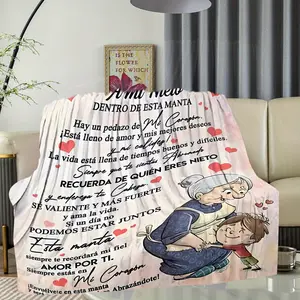 IS THE
FLOWER
FOR WHICH
A mi Nieto
DENTRO DE ESTA MANTA
Hay un pedazo de Mi Corazón
¡Está lleno de amor y mis mejores deseos
y mi calidez!
La vida está llena de tiempos buenos y difíciles.
Siempre que te sientas Abrumado
RECUERDA DE QUIÉN ERES NIETO
y enderezas tu Cabeza
SE VALIENTE Y MÁS FUERTE
y ama la vida.
Si un día no
PODEMOS ESTAR JUNTOS
Esta manta
siempre te recordará mi fiel
AMOR POR TI.
Siempre estás en Mi Corazón
¡Envuélvete en esta manta
Abrazándote!